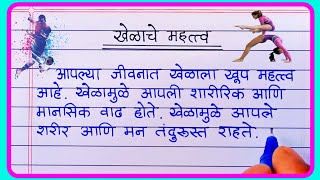 खेळाचे महत्त्व
आपल्या जीवनात खेळाला खूप महत्त्व
आहे. खेळामुळे आपली शारीरिक आणि
मानसिक वाढ होते. खेळामुळे आपले
शरीर आणि मन तंदुरुस्त राहते.